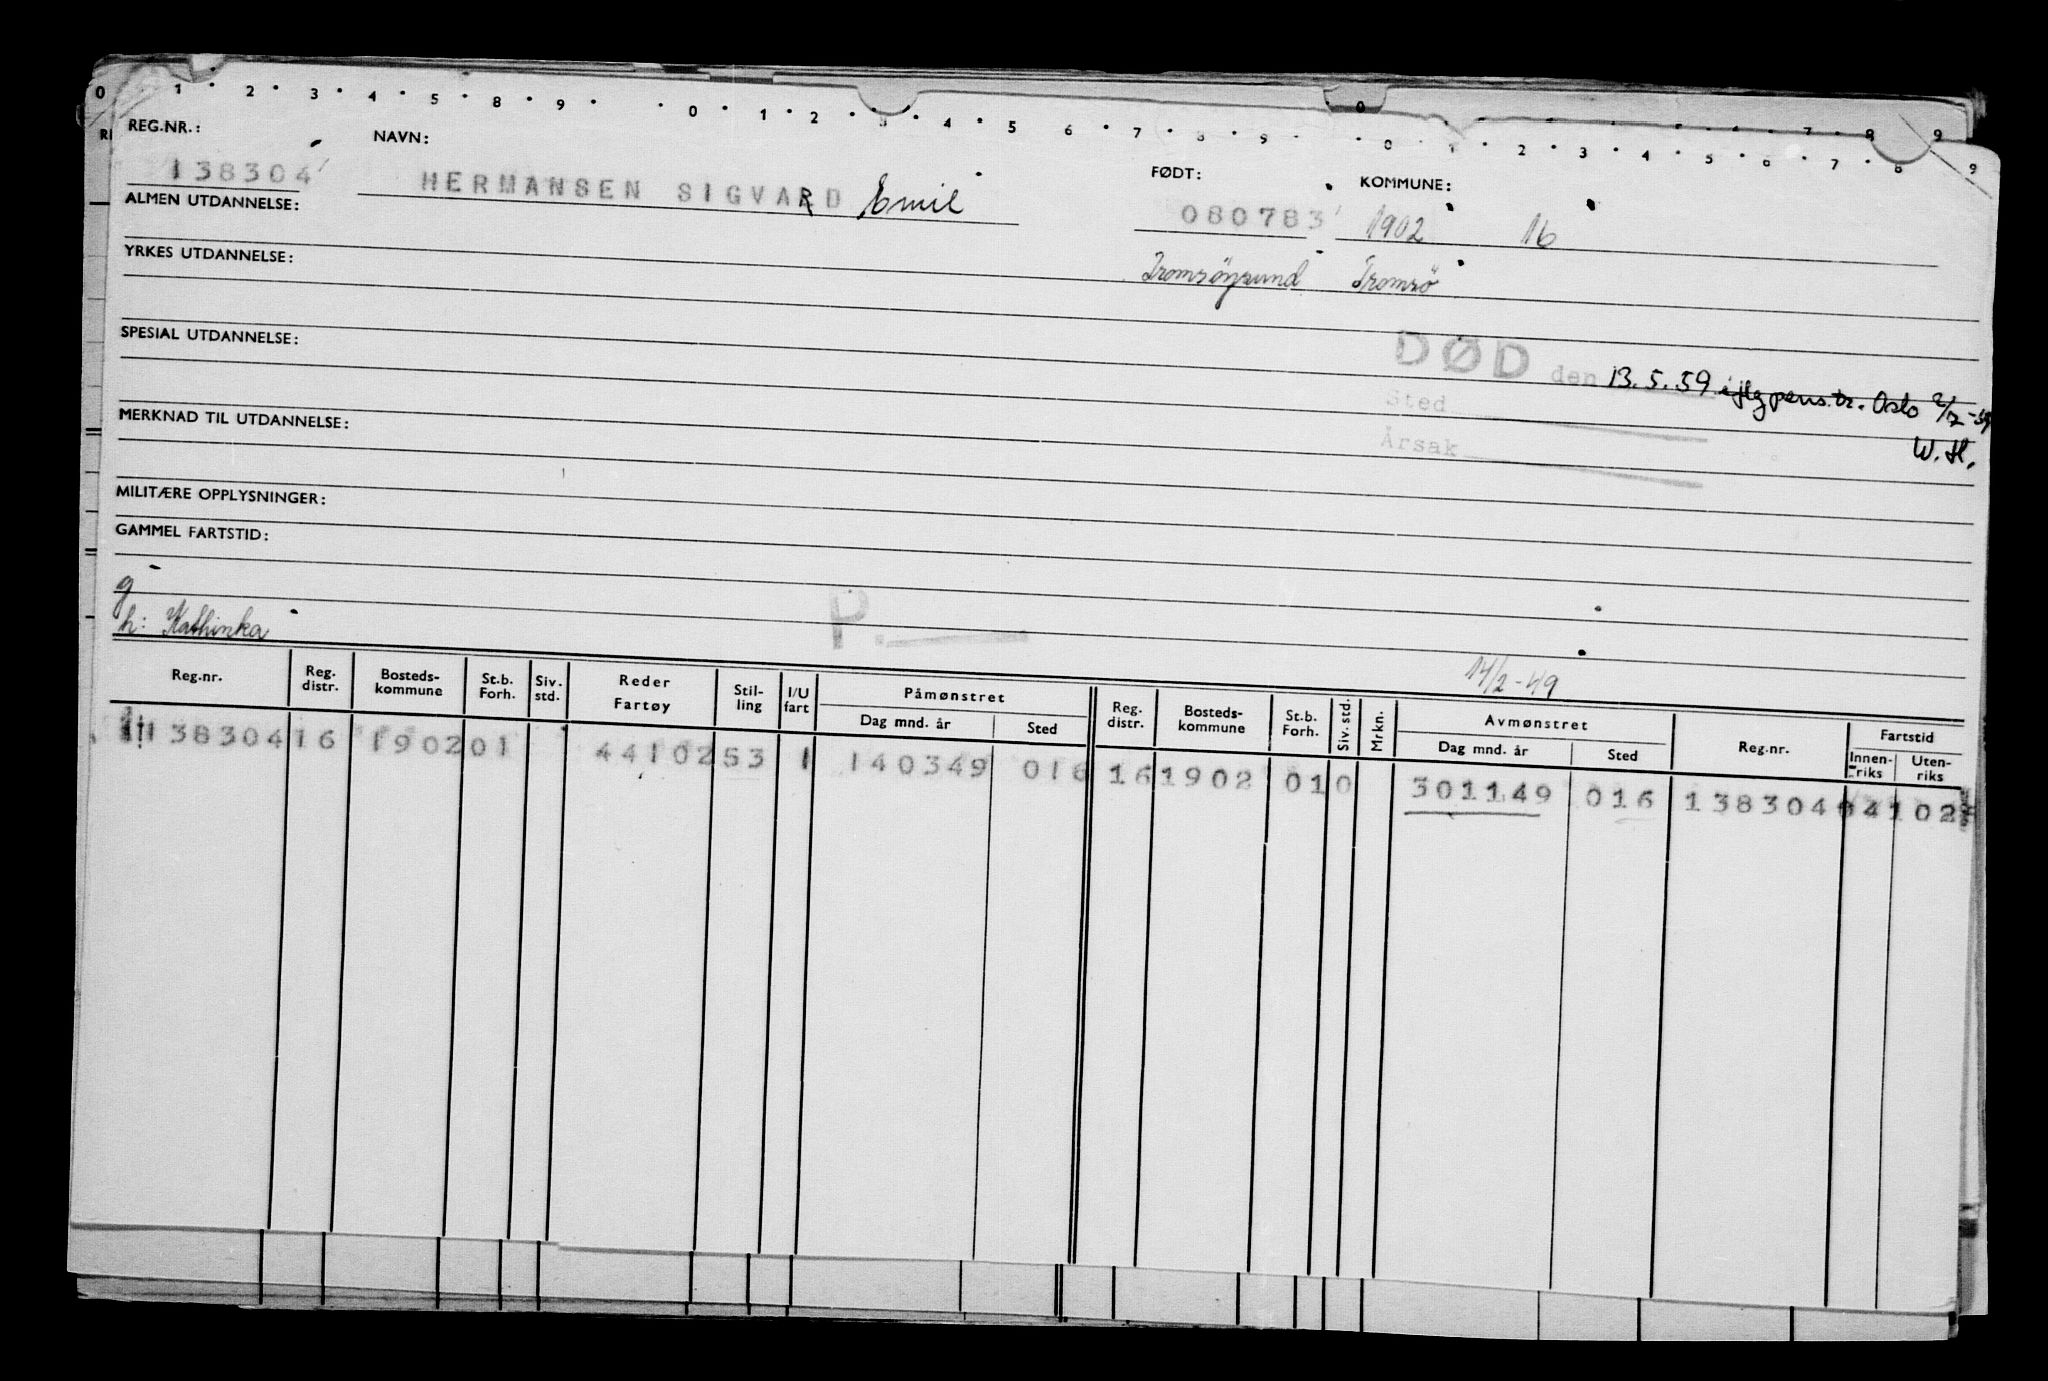 0 1 2 3 4 5 8 9 0 1 2 3 4 5 6 7 8 9 0 1 2 3 4 5 6 7 8 9
REG.NR.: NAVN: FØDT: KOMMUNE:
138304 HERMANSEN SIGVARD Emil 080783 1902 16
ALMEN UTDANNELSE:
YRKES UTDANNELSE: Tromsöysund Tromsö
SPESIAL UTDANNELSE:
DØD den 13.5.59 iflg pens.tr. Oslo 2/7-59
Sted
W.H.
MERKNAD TIL UTDANNELSE:
Årsak
MILITÆRE OPPLYSNINGER:
GAMMEL FARTSTID:
g
h: Kathinka P.
14/2-49
Reg.nr. Reg. distr. Bosteds-kommune St.b. Forh. Siv. std. Reder Fartøy Stil-ling I/U fart Påmønstret Dag mnd. år Sted Reg. distr. Bosteds-kommune St.b. Forh. Siv. std. Mrkn. Avmønstret Dag mnd. år Sted Reg.nr. Fartstid Innen-riks Uten-riks
138304 16 1902 01 44102 53 1 140349 016 16 1902 01 0 301149 016 138304 04102